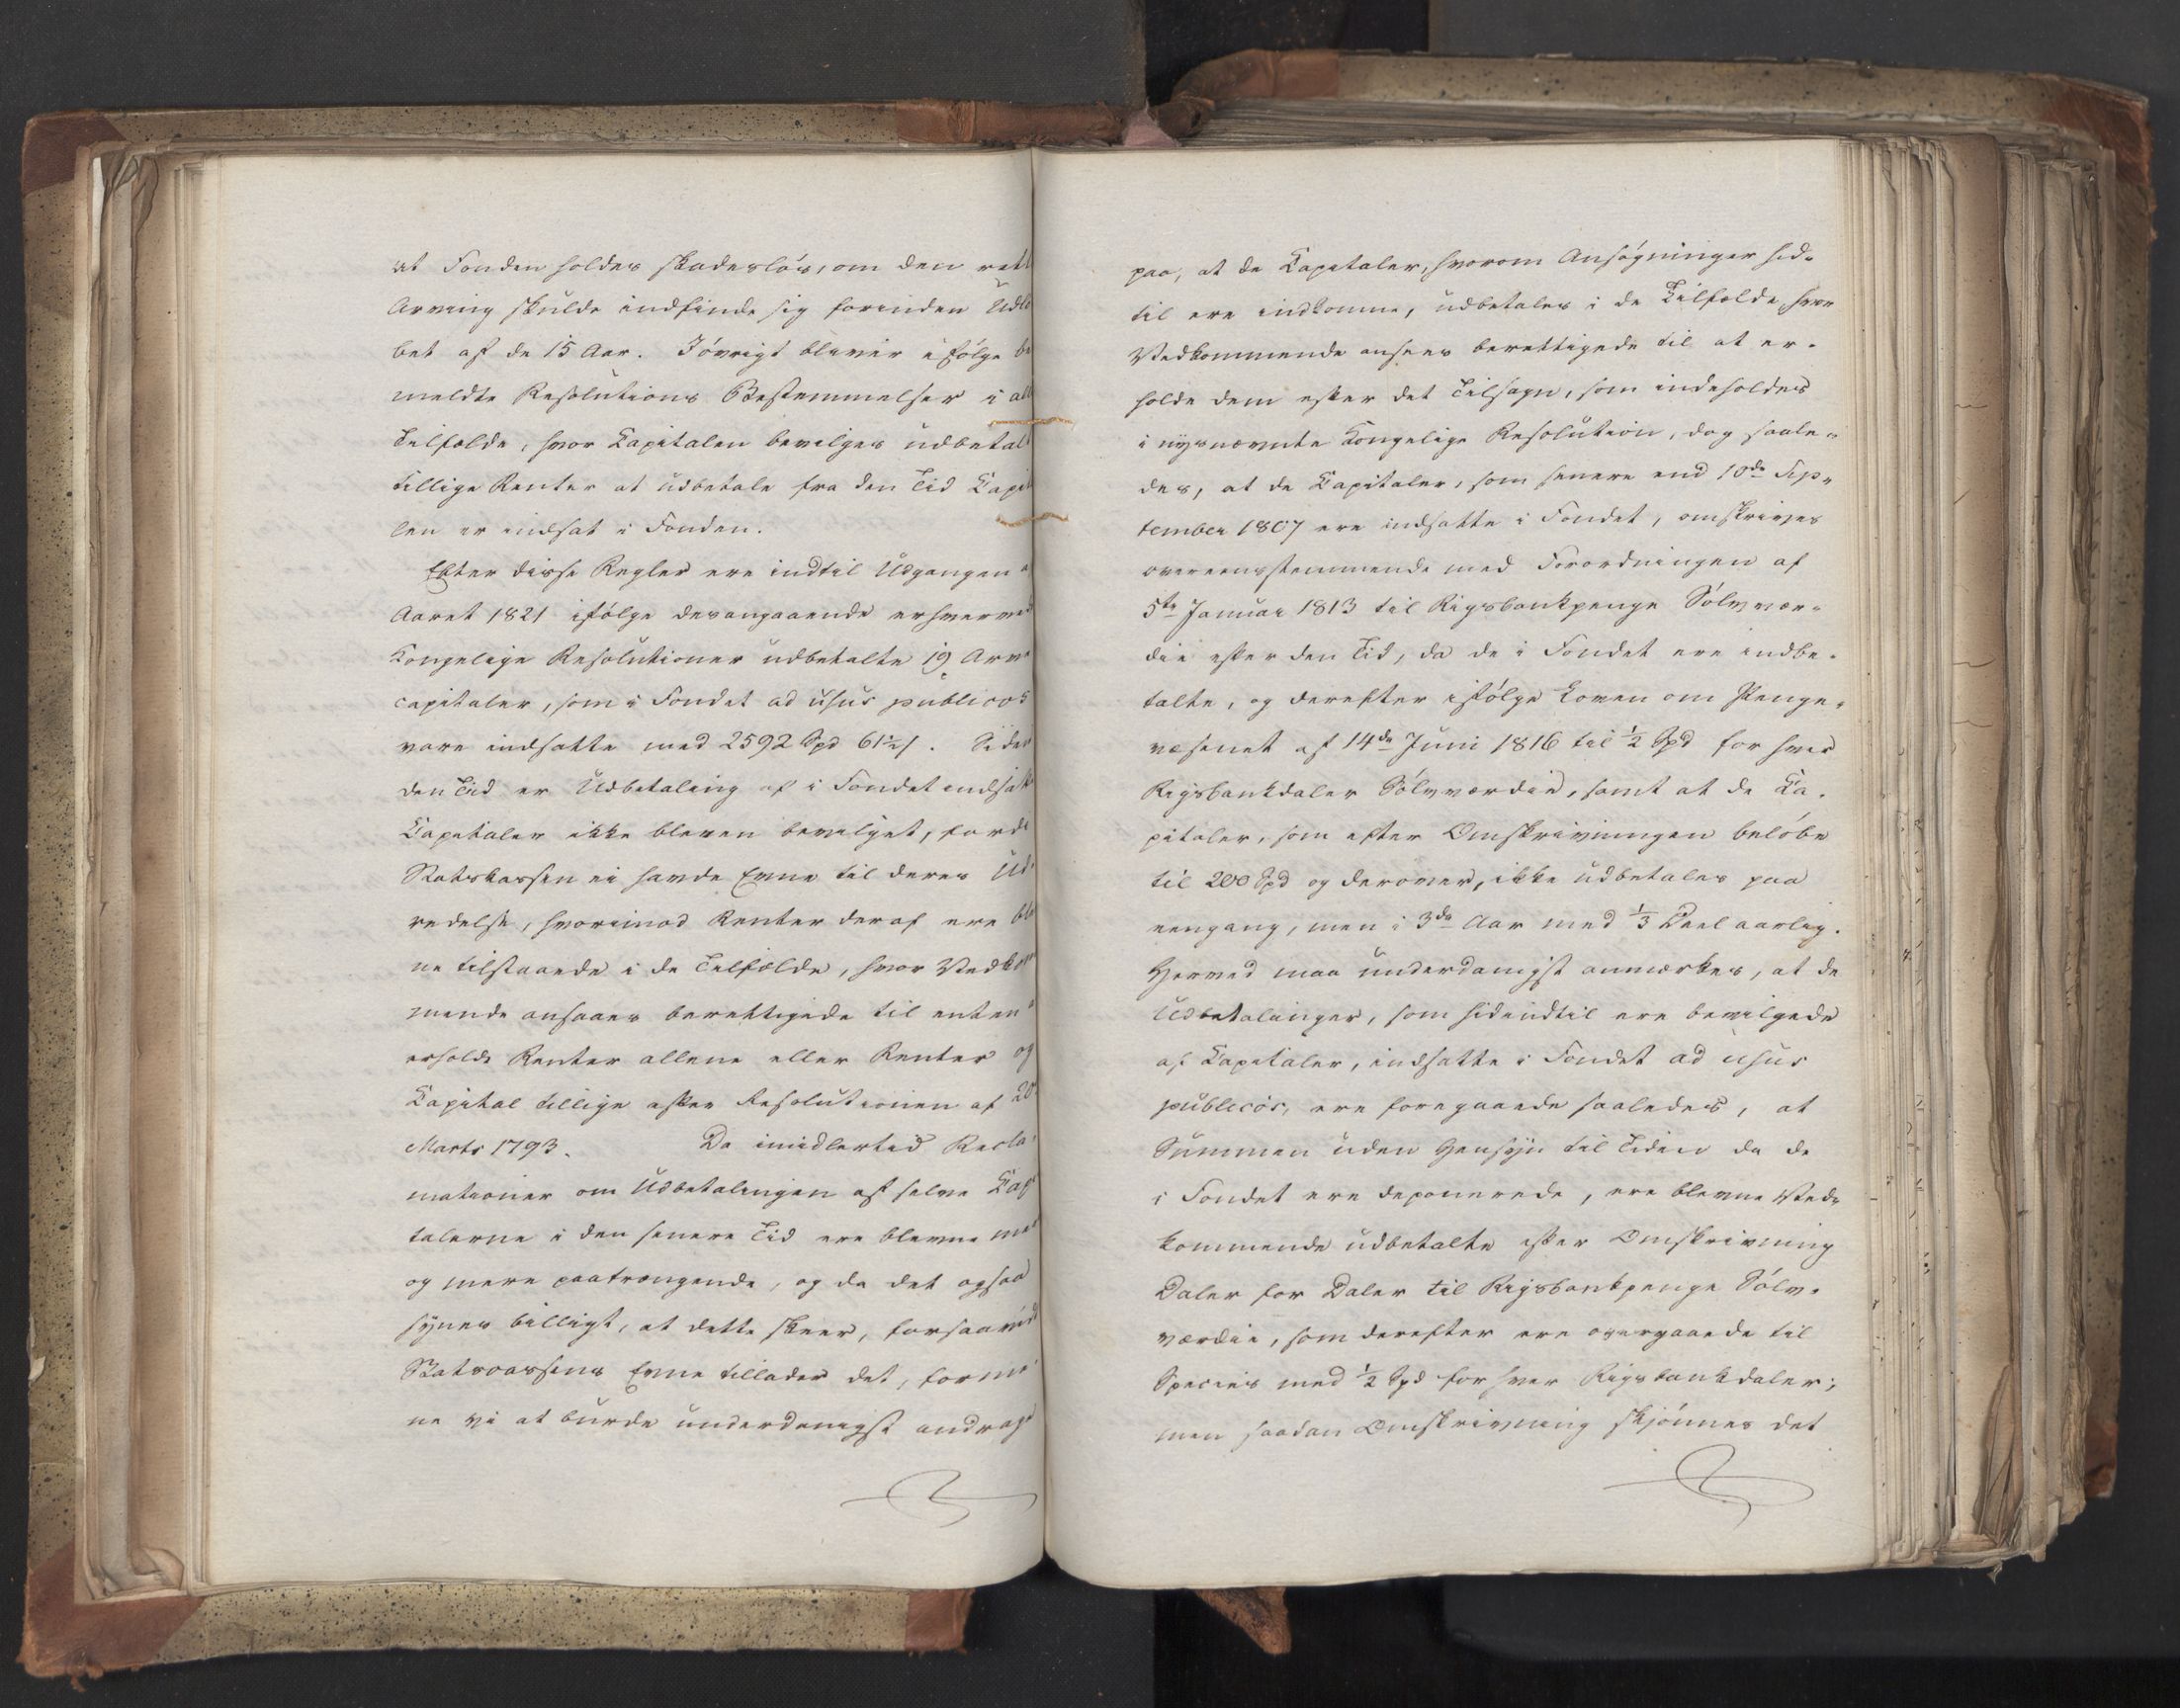 at Fonden holdes skadesløs, om den rett
Arving skulde indfinde sig forinden Udlø
bet af de 15 Aar. Iøvrigt bliver ifølge be
meldte Resolutions Bestemmelser i all
Tilfælde, hvor Capitalen bevilges udbetalt
tillige Renter at udbetale fra den Tid Capit
len er indsat i Fonden.
Efter disse Regler ere indtil Udgangen a
Aaret 1821 ifølge desangaaende erhverved
Kongelige Resolutioner udbetalte 19 Arve
capitaler, som i Fondet ad usus publicos
vare indsatte med 2592 Spd 61½ s. Siden
den Tid er Udbetaling af i Fondet indsatte
Capitaler ikke bleven bevilget, fordi
Statskassen ei havde Evne til deres Ud-
redelse, hvorimod Renter deraf ere ble
ne tilstaaede i de Tilfælde, hvor Vedkom
mende ansaaes berettigede til enten a
erholde Renter allene eller Renter og
Capital tillige efter Resolutionen af 20
Marts 1793. Da imidlertid Recla-
mationer om Udbetalingen af selve Capi
talerne i den senere Tid ere blevne mere
og mere paatrængende, og da det ogsaa
synes billigt, at dette skeer, forsaavidt
Statscassens Evne tillader det, forme
ne vi at burde underdanigst andrage
paa, at de Capitaler, hvorom Ansøgninger hid-
til ere indkomne, udbetales i de Tilfælde hvor
Vedkommende ansees berettigede til at er-
holde dem efter det Tilsagn, som indeholdes
i nysnævnte Kongelige Resolution, dog saale-
des, at de Capitaler, som senere end 10de Sep-
tember 1807 ere indsatte i Fondet, omskrives
overeensstemmende med Forordningen af
5te Januar 1813 til Rigsbankpenge Sølvvær-
die efter den Tid, da de i Fondet ere indbe-
talte, og derefter ifølge Loven om Penge-
væsenet af 14de Juni 1816 til ½ Spd for hver
Rigsbankdaler Sølvværdie, samt at de Ca-
pitaler, som efter Omskrivningen beløbe
til 200 Spd og derover, ikke udbetales paa
eengang, men i 3de Aar med ⅓ Deel aarlig.
Herved maa underdanigst anmærkes, at de
Udbetalinger, som hidindtil ere bevilgede
af Capitaler, indsatte i Fondet ad usus
publicos, ere foregaaede saaledes, at
Summen uden Hensyn til Tiden da de
i Fondet ere deponerede, ere blevne Ved-
kommende udbetalte efter Omskrivning
Daler for Daler til Rigsbankpenge Sølv-
værdie, som derefter ere overgaaede til
Species med ½ Spd for hver Rigsbankdaler;
men saadan Omskrivning skjønnes det